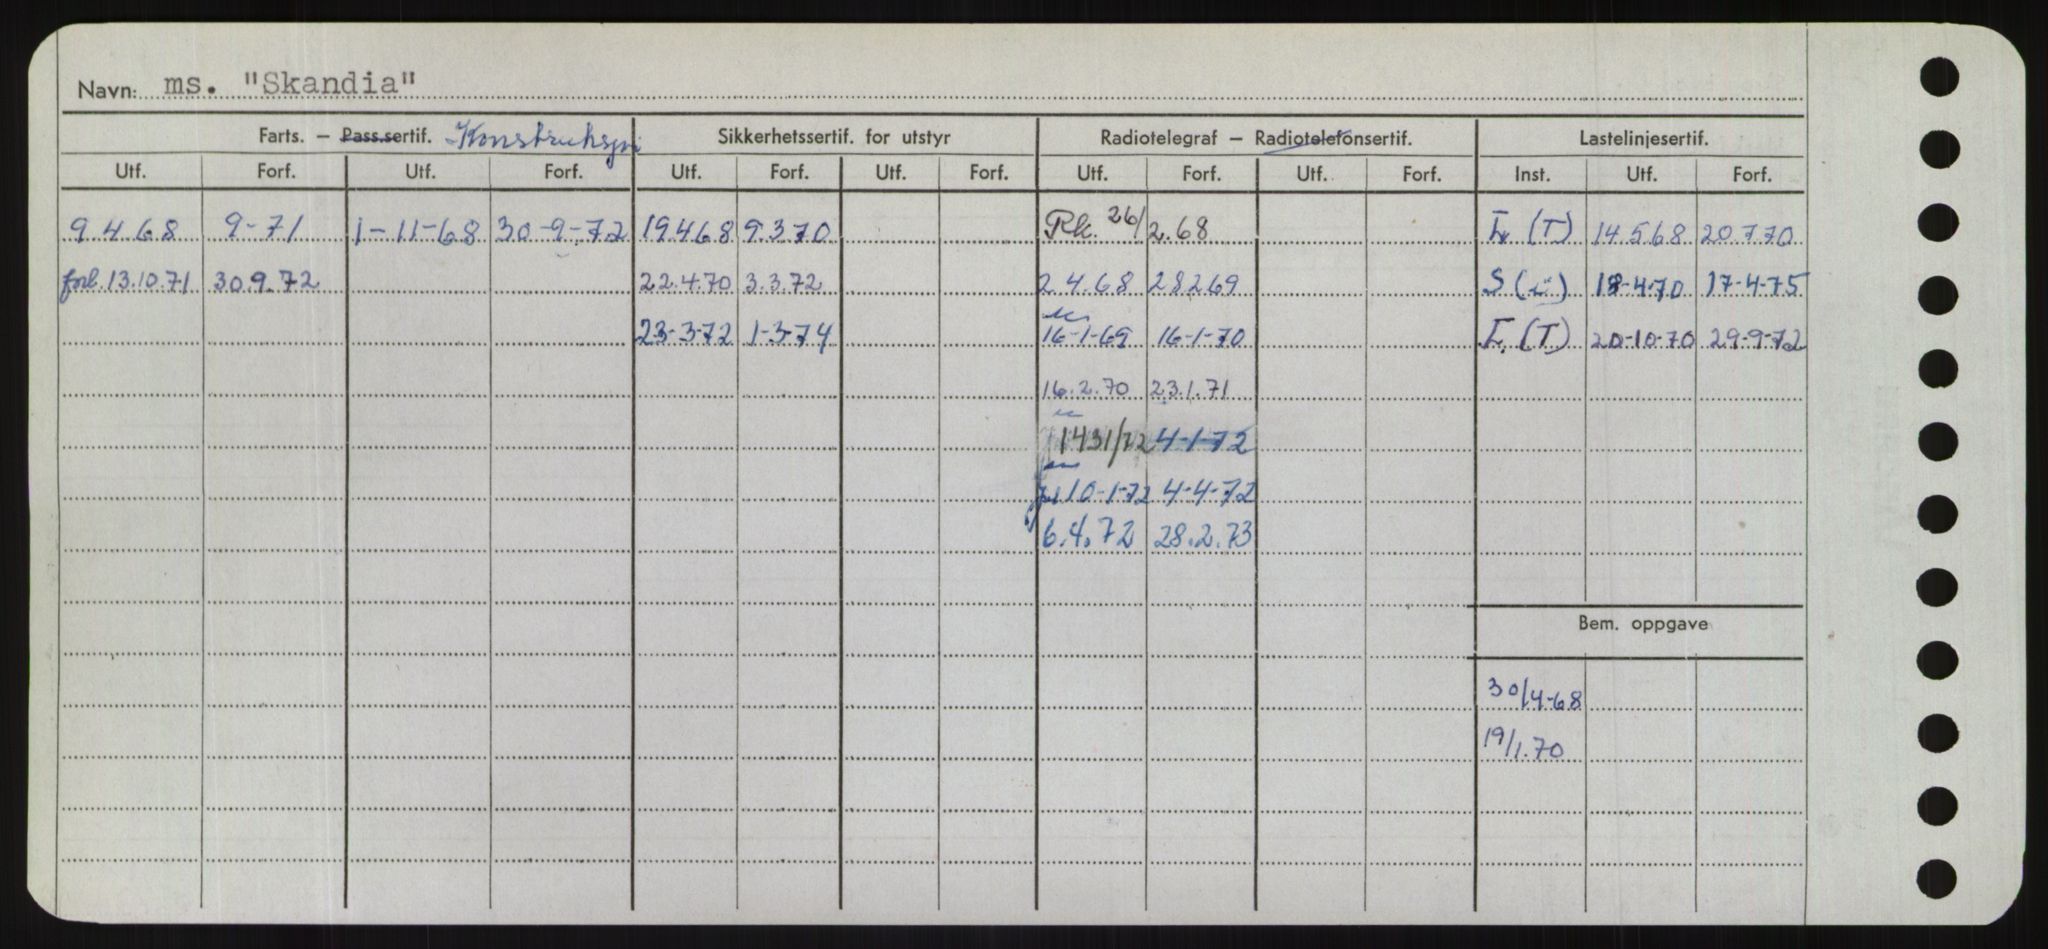 Navn: ms. "Skandia"
Farts. – Pass.sertif. Konstruksjon Sikkerhetssertif. for utstyr Radiotelegraf – Radiotelefonsertif. Lastelinjesertif.
Utf. Forf. Utf. Forf. Utf. Forf. Utf. Forf. Utf. Forf. Utf. Forf. Inst. Utf. Forf.
9.4.68 9-71 1-11-68 30-9-72 19.4.68 9.3.70 Rk. 26/2.68 L (T) 14.5.68 20.7.70
forl. 13.10.71 30.9.72 22.4.70 3.3.72 2.4.68 28.2.69 S (L) 18-4-70 17-4-75
23-3-72 1-3-74 16-1-69 16-1-70 L (T) 20-10-70 29-9-72
16.2.70 23.1.71
4-1-72
10-1-72 4-4-72
6.4.72 28.2.73
Bem. oppgave
30/4-68
19/1.70